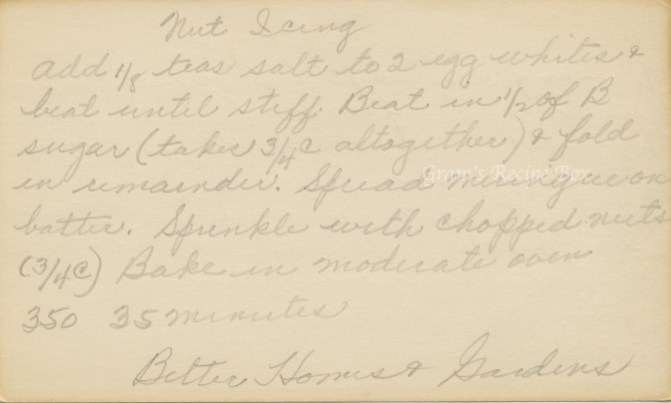 Nut Icing
Add 1/8 teas salt to 2 egg whites &
beat until stiff. Beat in 1/2 of B
sugar (takes 3/4 c altogether) & fold
in remainder. Spread meringue on
batter. Sprinkle with chopped nuts
(3/4 C) Bake in moderate oven
350 35 minutes
Better Homes & Gardens
Gram's Recipe Box